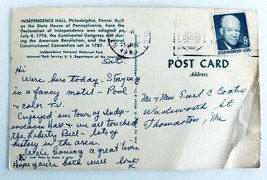 INDEPENDENCE HALL, Philadelphia, Penna. Built
as the State House of Pennsylvania, here the
Declaration of Independence was adopted
July 4, 1776, the Continental Congress sat dur-
ing the American Revolution, and the Federal
Constitutional Convention sat in 1787.
Independence National Historical
National Park Service, U. S. Department of the
EISENHOWER·USA
6c
POST CARD
Address
Sat.
Hi
Were here today. Staying
in a fancy motel - Pool
+ color T.V.
Enjoyed our tour of Indep-
endence Hall & we all touched
the Liberty Bell - lots of
history in the area.
We're having a great time
Hope you're both well
Mr & Mrs Earl C Coates
Wadsworth St
Thomaston, Me